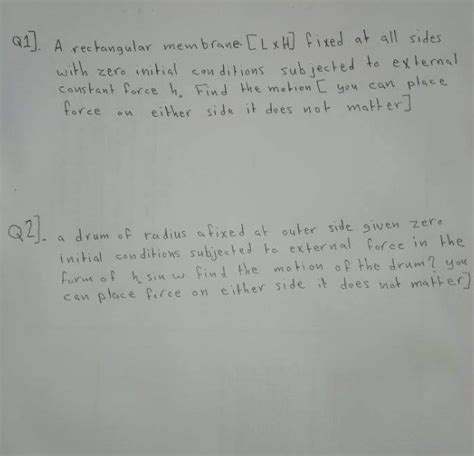 Q1]. A rectangular membrane [L x H] fixed at all sides
with zero initial conditions subjected to external
constant force h. Find the motion [ you can place
force on either side it does not matter]
Q2]. a drum of radius a fixed at outer side given zero
initial conditions subjected to external force in the
form of h sin w find the motion of the drum? you
can place force on either side it does not matter]